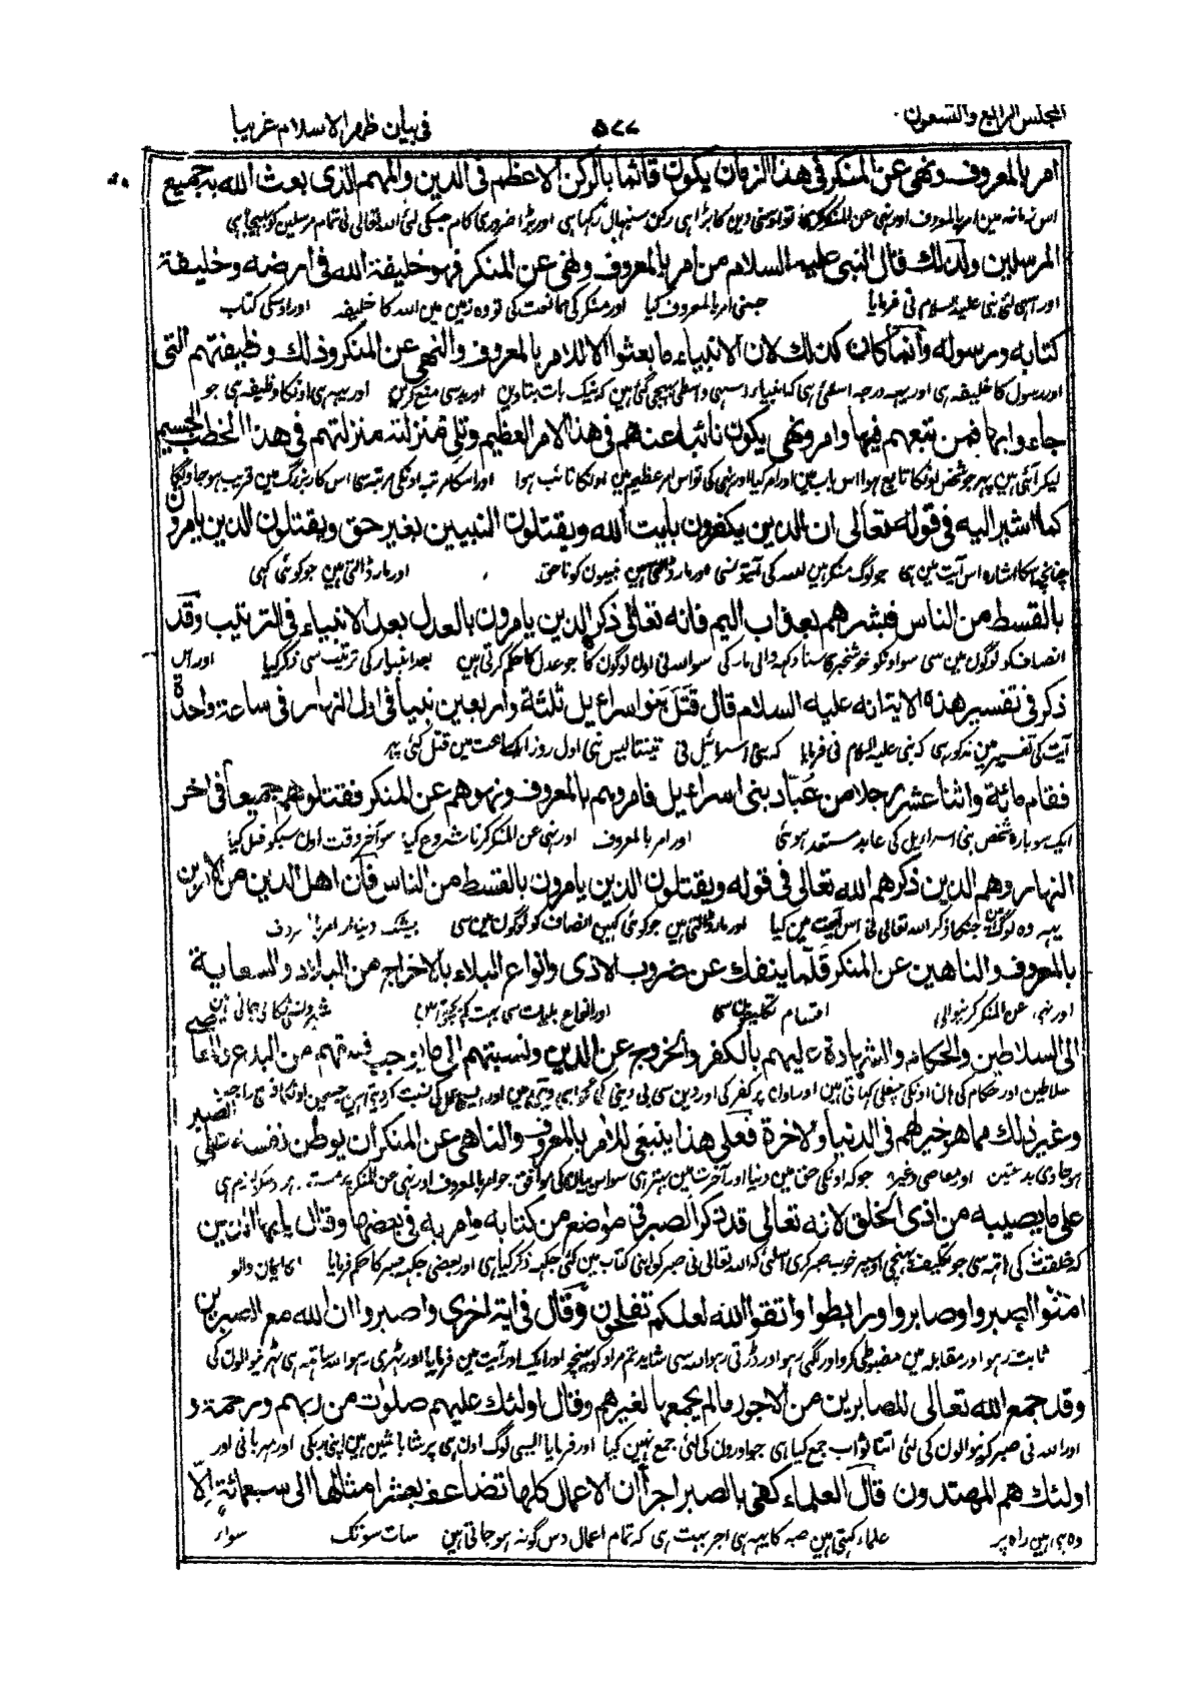 المجلس الرابع والتسعون
٥٧٧
فى بيان ظهر الاسلام غريبا
امر بالمعروف ونهى عن المنكر فى هذا الزمان يكون قائما بالركن الاعظم فى الدين والمهم الذى بعث الله به جميع
اس زمانه مین امر بالمعروف اور نہی عن المنکر کری تو اوسنی دین کا بڑا ہی رکن سنبھال رکھا ہی اور بڑا ضروری کام جسکی لئی الله تعالی نی تمام مرسلین کو بھیجا ہی
المرسلين ولذلك قال النبى عليه السلام من امر بالمعروف ونهى عن المنكر فهو خليفة الله فى ارضه وخليفة
اور اسی لئی نبی علیہ السلام نی فرمایا جسنی امر بالمعروف کیا اور منکر کی ممانعت کی تو وہ زمین مین اللہ کا خلیفہ اور اوسکی کتاب
كتابه ورسوله وانما كان كذلك لان الانبياء ما بعثوا الا للامر بالمعروف والنهى عن المنكر وذلك وظيفتهم التى
اور رسول کا خلیفہ ہی اور یہہ درجہ اسلئی ہی کہ انبیاء اسی واسطی بھیجی گئی ہین کہ نیک بات بتاوین اور بدی سی منع کرین اور یہہ ہی اونکا وظیفہ ہی جو
جاءوا بها فمن تبعهم فيها وامر ونهى يكون نائبا عنهم فى هذا الامر العظيم وتلى منزلته منزلتهم فى هذا الخطب الجسيم
لیکر آئی ہین پہر جو شخص اونکا تابع ہوا اس باب مین اور امر کیا اور نہی کی تو اس امر عظیم مین اونکا نائب ہوا اور اسکا مرتبہ اونکی مرتبہ سی اس کار بزرگ مین قریب ہو جاویگا
كما اشير اليه فى قوله تعالى ان الذين يكفرون بايت الله ويقتلون النبيين بغير حق ويقتلون الذين يامرون
چنانچہ اسکا اشارہ اس آیت مین ہی جو لوگ منکر ہین اللہ کی آیتونسی اور مار ڈالتی ہین نبیون کو ناحق اور مار ڈالتی ہین جو کوئی کہی
بالقسط من الناس فبشرهم بعذاب اليم فانه تعالى ذكر الذين يامرون بالعدل بعد الانبياء فى الترتيب وقد
انصاف کو لوگون مین سی سو اونکو خوشخبری سنا دکہہ والی مار کی سو اللہ نی اون لوگون کا جو عدل کا حکم کرتی ہین بعد انبیاء کی ترتیب سی ذکر کیا اور اس
ذكر فى تفسير هذه الاية انه عليه السلام قال قتل بنو اسرائيل ثلثة واربعين نبيا فى اول النهار فى ساعة واحدة
آیت کی تفسیر مین مذکور ہی کہ نبی علیہ السلام نی فرمایا کہ بنی اسرائیل نی تینتالیس نبی اول روز ایک ساعت مین قتل کئی پہر
فقام مائة واثنا عشر رجلا من عباد بنى اسرائيل فامروهم بالمعروف ونهوهم عن المنكر فقتلوهم جميعا فى اخر
ایک سو بارہ شخص بنی اسرائیل کی عابد مستعد ہوئی اور امر بالمعروف اور نہی عن المنکر کرنا شروع کیا سو آخر وقت اون سبکو قتل کیا
النهار وهم الذين ذكرهم الله تعالى فى قوله ويقتلون الذين يامرون بالقسط من الناس فان اهل الدين من الامرين
یہہ وہ لوگ ہین جنکا ذکر اللہ تعالی نی اس آیت مین کیا اور مار ڈالتی ہین جو کوئی کہین انصاف کو لوگون مین سی بیشک دیندار
بالمعروف والناهين عن المنكر قلما ينفك عن ضروب الاذى وانواع البلاء بالاخراج من البلاد والسعاية
اور نہی عن المنکر کرنیوالی اقسام تکلیف سی اور انواع بلیات سی بہت کم بچتی ہین
الى السلاطين والحكام والشهادة عليهم بالكفر والخروج عن الدين ونسبتهم الى ما يوجب فسقهم من البدع والمعاصى
سلاطین اور حکام کی ہان اونکی چغلی کہاتی ہین اور اون پر کفر کی اور دین سی بی دینی کی گواہی دیتی ہین
وغير ذلك مما هو خير لهم فى الدنيا والاخرة فعلى هذا ينبغى للامر بالمعروف والناهى عن المنكر ان يوطن نفسه على الصبر
ہو جاوی بدعتین اور معاصی وغیرہ جو کہ اونکی حق مین دنیا اور آخرت مین بہتر ہی سو اس بیان کی موافق جو امر بالمعروف اور نہی عن المنکر پر
على ما يصيبه من اذى الخلق لانه تعالى قد ذكر الصبر فى مواضع من كتابه وامر به فى بعضها وقال يايها الذين
کہ خلقت کی ہاتہہ سی جو تکلیف پہنچی اوسپر خوب صبر کری اسلئی کہ اللہ تعالی نی صبر کو اپنی کتاب مین کئی جگہہ ذکر کیا ہی اور بعضی جگہہ صبر کا حکم فرمایا ای ایمان والو
امنوا اصبروا وصابروا ورابطوا واتقوا الله لعلكم تفلحون وقال فى اية اخرى واصبروا ان الله مع الصبرين
ثابت رہو اور مقابلہ مین مضبوطی کرو اور لگی رہو اور ڈرتی رہو اللہ سی شاید تم مراد کو پہنچو اور ایک اور آیت مین فرمایا اور ٹھہری رہو اللہ ساتہہ ہی ٹھہرنیوالون کی
وقد جمع الله تعالى للصابرين من الاجور ما لم يجمعها لغيرهم وقال اولئك عليهم صلوات من ربهم ورحمة و
اور اللہ نی صبر کرنیوالون کی لئی اتنا ثواب جمع کیا ہی جو اورون کی لئی جمع نہین کیا اور فرمایا ایسی لوگ اون ہی پر شاباشین ہین اپنی رب کی اور مہربانی اور
اولئك هم المهتدون قال العلماء كفى بالصبر اجرا ان الاعمال كلها تضاعف بعشر امثالها الى سبعمائة الا
وہ ہی ہین راہ پر علماء کہتی ہین صبر کا یہہ ہی اجر بہت ہی کہ تمام اعمال دس گونہ ہو جاتی ہین سات سو تک سواء